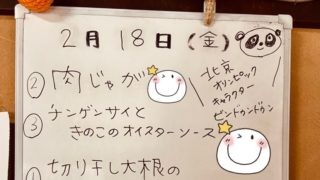 2月18日(金)
②肉じゃが
北京
オリンピック
キャラクター
ビンドゥンドゥン
③チンゲンサイと
きのこのオイスターソース
切り干し大根の